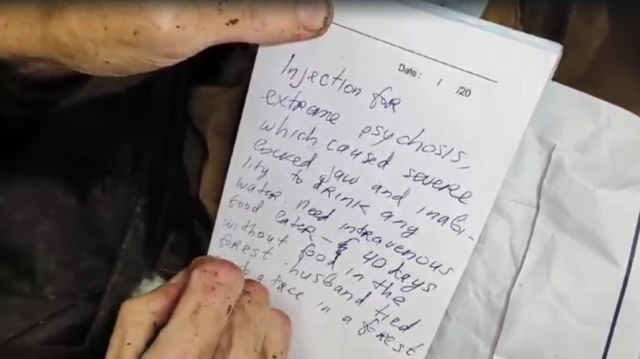 Date: / /20
Injection for
extreme psychosis,
which caused severe
locked jaw and inabi-
lity to drink any
water. need intravenous
food later - 40 days
without food in the
forest. husband tied
a tree in a forest